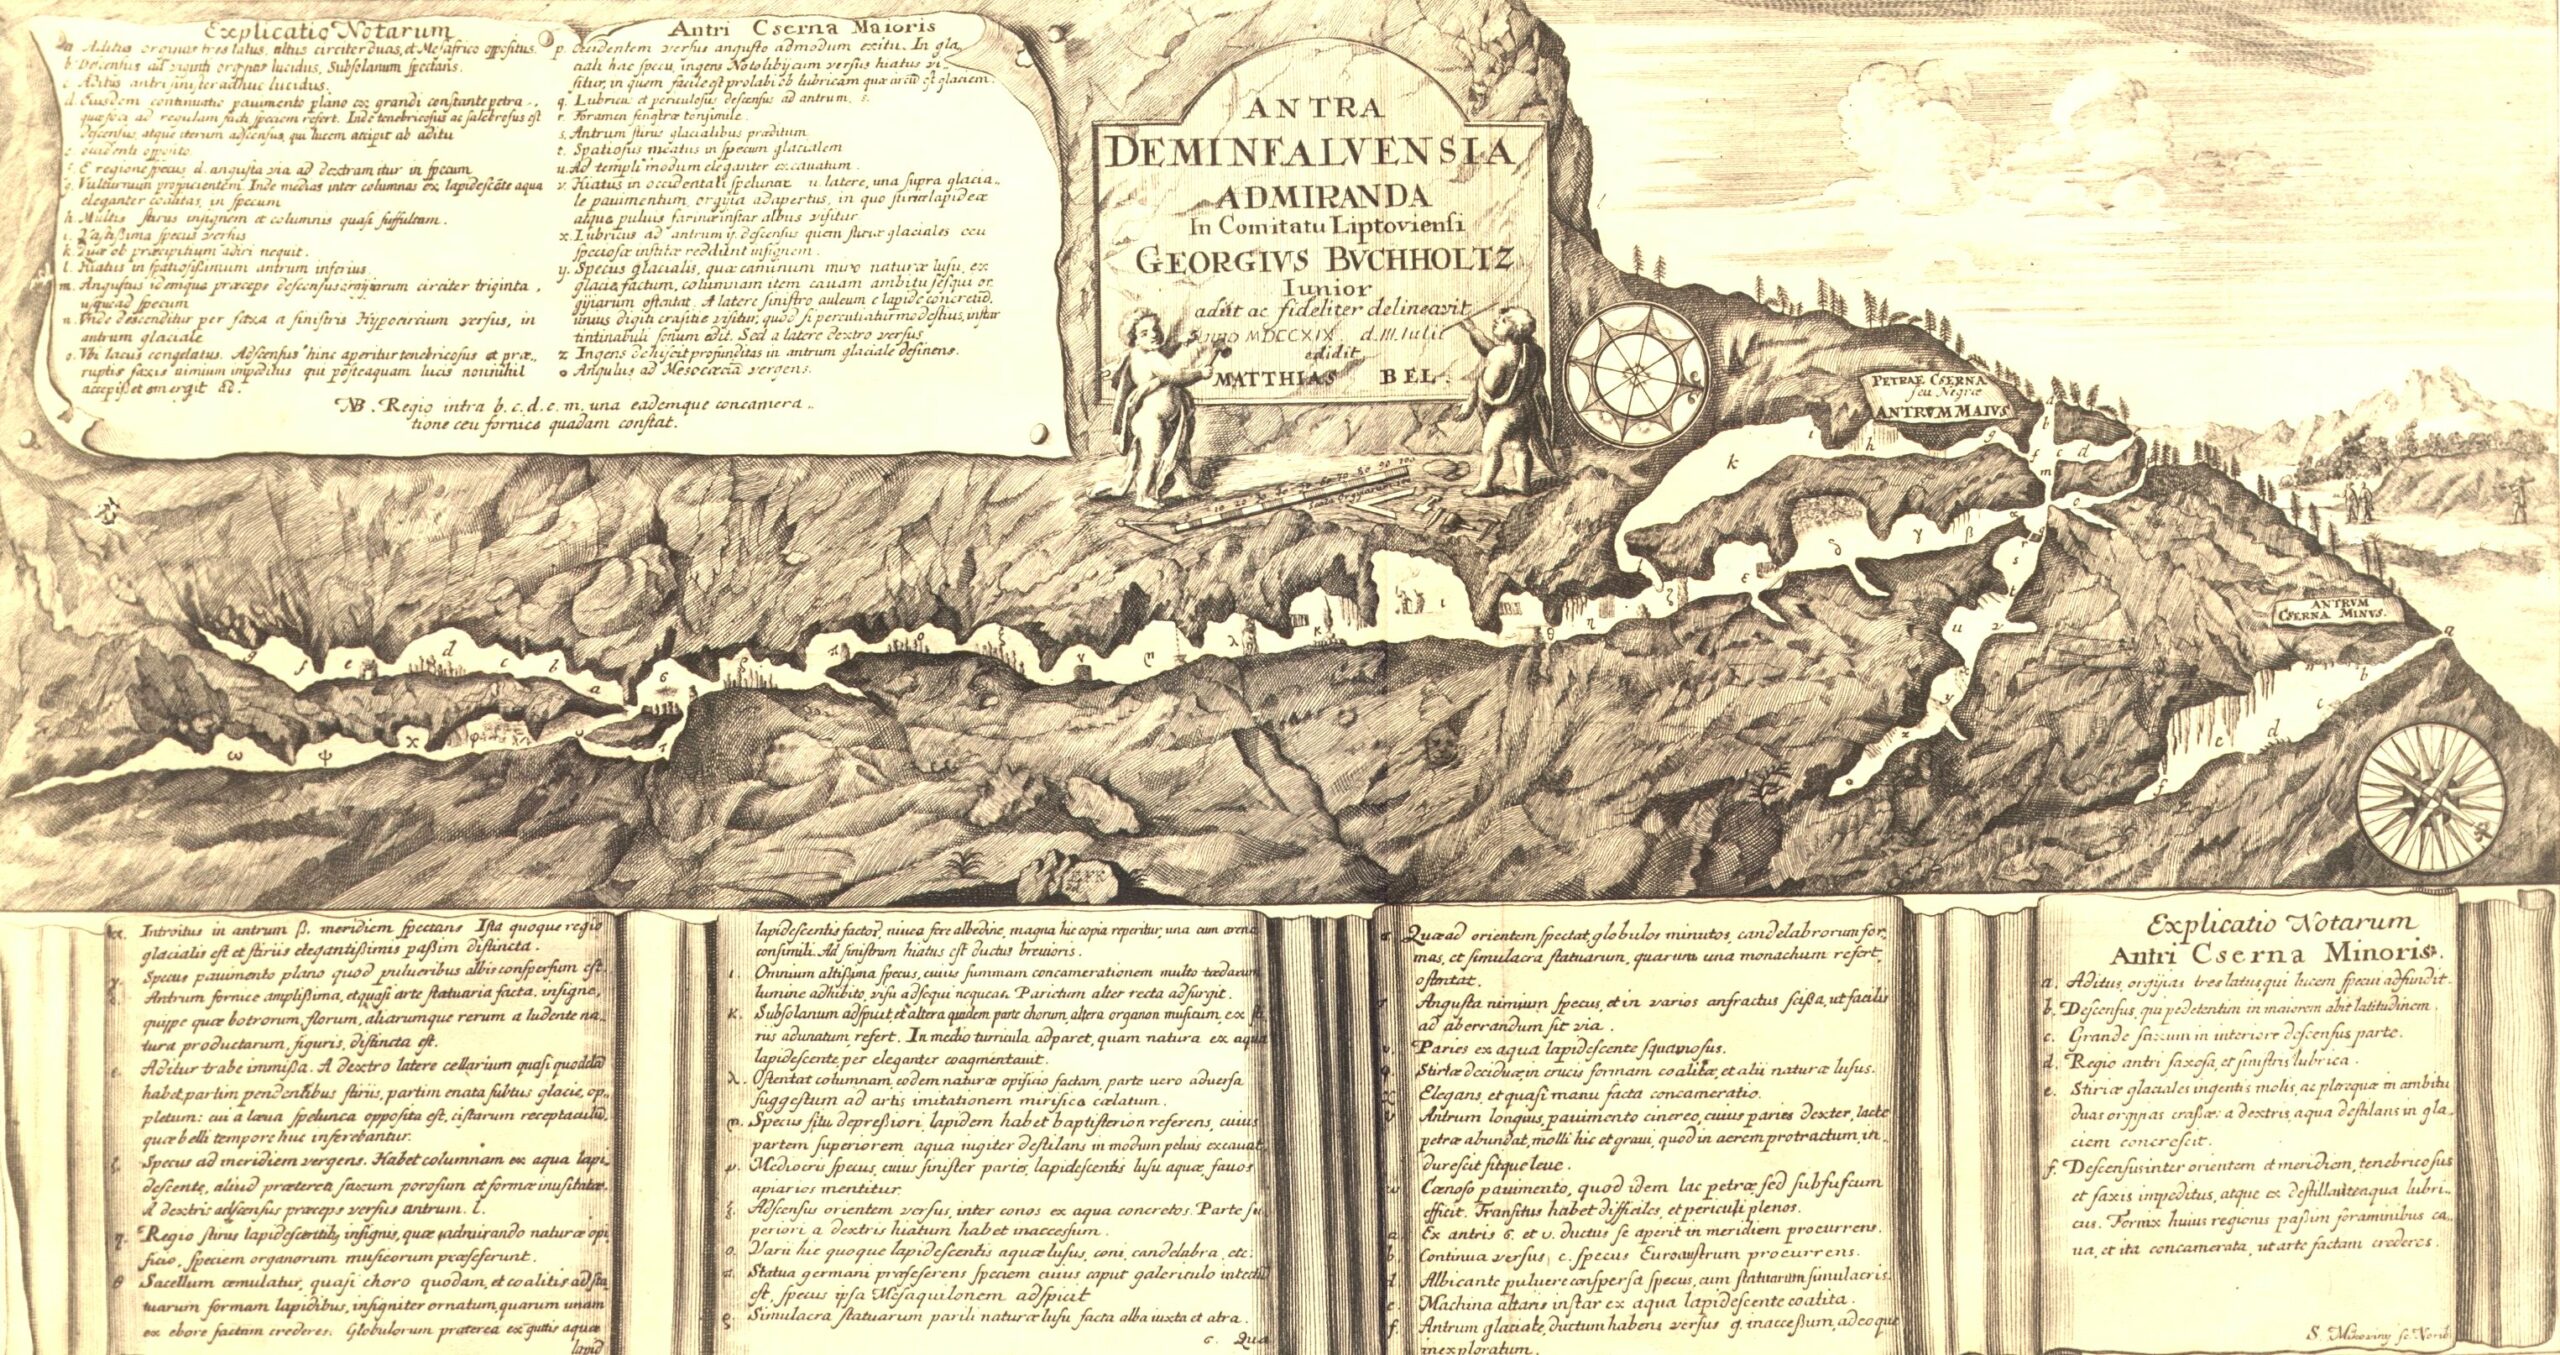 Explicatio Notarum
a Aditus orgyias tres latus, altus circiter duas, et Mesafrico oppositus.
b. Descensus ad viginti orgyias lucidus, Subsolanum spectans.
c. Aditus antri sinister adhuc lucidus.
d. Eiusdem continuatio pauimento plano ex grandi constante petra,
quæ foci ad regulam facti speciem refert. Inde tenebricosus ac salebrosus est
descensus, atque iterum adscensus, qui lucem accipit ab aditu
e. occidenti opposito.
f. E regione specus d. angusta via ad dextram itur in specum
g. Vulturnum prospicientem. Inde medias inter columnas ex lapidescēte aqua
eleganter coalitas, in specum
h. Multis stiriis insignem et columnis quasi suffultam.
i. Vastissima specus versus
k. Quæ ob præcipitium adiri nequit.
l. Hiatus in spatiosissimum antrum inferius
m. Angustus idemque præceps descensus orgyiarum circiter triginta,
usque ad specum
n. Vnde descenditur per saxa a sinistris Hypocircium versus, in
antrum glaciale
o. Vbi lacus congelatus. Adscensus hinc aperitur tenebricosus et præ..
ruptis saxis nimium impeditus qui posteaquam lucis nonnihil
accepisset emergit ad.
Antri Cserna Maioris
p. Occidentem versus angusto admodum exitu. In gla,
ciali hac specu, ingens Notolibycum versus hiatus vi..
situr, in quem facile est prolabi ob lubricam quæ circū est glaciem.
q. Lubricus et periculosus descensus ad antrum. s.
r. Foramen fenestræ consimile.
s. Antrum stiriis glacialibus præditum
t. Spatiosus meatus in specum glacialem
u. Ad templi modum eleganter excauatum.
v. Hiatus in occidentali speluncæ u. latere, una supra glacia..
le pauimentum, orgyia adapertus, in quo stiriæ lapideæ
atque puluis farinæ instar albus visitur.
x. Lubricus ad antrum y. descensus quem stiriæ glaciales ceu
speciosæ institæ reddunt insignem.
y. Specus glacialis, quæ caminum miro naturæ lusu, ex
glacie factum, columnam item cauam ambitu sesqui or,
gyiarum ostentat. A latere sinistro auleum e lapide concretū,
unius digiti crassitie visitur, quod si percutiatur modestius, instar
tintinabuli sonum edit. Sed a latere dextro versus
z Ingens dehiscit profunditas in antrum glaciale desinens.
o Angulus ad Mesocæciā vergens.
NB. Regio intra b. c. d. e. m. una eademque concamera..
tione ceu fornice quadam constat.
ANTRA
DEMINFALVENSIA
ADMIRANDA
In Comitatu Liptoviensi
GEORGIVS BVCHHOLTZ
Iunior
adiit ac fideliter delineavit
Anno MDCCXIX d. III. Iulii
edidit
MATTHIAS BEL.
10 20 30 40 50 60 70 80 90 100
Scala Orgyiarum
PETRAE CSERNA
seu Nigræ
ANTRVM MAIVS
ANTRVM
CSERNA MINVS.
α. Introitus in antrum β. meridiem spectans Ista quoque regio
glacialis est et stiriis elegantissimis passim distincta.
γ. Specus pauimento plano quod pulueribus albis conspersum est.
δ. Antrum fornice amplissima, et quasi arte statuaria facta, insigne,
quippe quæ botrorum, florum, aliarumque rerum a ludente na..
tura productarum, figuris, distincta est.
ε. Aditur trabe immissa. A dextro latere cellarium quasi quoddā
habet, partim pendentibus stiriis, partim enata subtus glacie, op..
pletum: cui a læua spelunca opposita est, cistarum receptaculū,
quæ belli tempore huc inferebantur.
ζ. Specus ad meridiem vergens. Habet columnam ex aqua lapi..
descente, aliud præterea saxum porosum et formæ inusitatæ.
A dextris adscensus præceps versus antrum. l.
η. Regio stiriis lapidescentibq insignis, quæ admirando naturæ opi
ficio, speciem organorum musicorum præseferunt.
θ Sacellum æmulatur, quasi choro quodam, et coalitis ad sta
tuarum formam lapidibus, insigniter ornatum, quarum unam
ex ebore factam crederes. Globulorum præterea ex guttis aquæ
lapid
lapidescentis factor, niuea fere albedine, magna hic copia reperitur, una cum arena
consimili. Ad sinistrum hiatus est ductus brevioris.
ι. Omnium altissima specus, cuius summam concamerationem multo tædarum
lumine adhibito, visu adsequi nequeas. Parietum alter recta adsurgit.
κ. Subsolanum adspicit, et altera quidem parte chorum, altera organon musicum, ex sti
riis adunatum, refert. In medio turricula adparet, quam natura ex aqua
lapidescente per eleganter coagmentauit.
λ. Ostentat columnam, eodem naturæ opificio factam, parte uero aduersa
suggestum ad artis imitationem mirifice cælatum.
m. Specus situ depressiori, lapidem habet baptisterion referens, cuius
partem superiorem, aqua iugiter destilans in modum peluis excauat.
ν. Mediocris specus, cuius sinister paries, lapidescentis lusu aquæ, fauos
apiarios mentitur.
ξ. Adscensus orientem versus, inter conos ex aqua concretos. Parte su
periori a dextris hiatum habet inaccessum.
ο. Varii hic quoque lapidescentis aquæ lusus, coni, candelabra, etc.
π. Statua germani præseferens speciem cuius caput galericulo intectū
est, specus ipsa Mesaquilonem adspicit
ρ. Simulacra statuarum parili naturæ lusu facta alba iuxta et atra.
σ. Quæ
σ Quæ ad orientem spectat, globulos minutos, candelabrorum for..
mas, et simulacra statuarum, quarum una monachum refert,
ostentat.
τ. Angusta nimium specus, et in varios anfractus scissa, ut facilis
ad aberrandum sit via.
υ. Paries ex aqua lapidescente squamosus.
φ. Stiriæ deciduæ, in crucis formam coalitæ, et alii naturæ lusus.
χ Elegans, et quasi manu facta concameratio.
ψ Antrum longius, pauimento cinereo, cuius paries dexter, lacte
petræ abundat, molli hic et graui, quod in aerem protractum, in..
durescit fitque leue.
ω Cœnoso pauimento, quod idem lac petræ, sed subfuscum
efficit. Transitus habet difficiles, et periculi plenos.
a. Ex antris σ. et υ. ductus se aperit in meridiem procurrens.
b. Continua versus, c. specus Euroaustrum procurrens.
d. Albicante puluere conspersa specus, cum statuarum simulacris.
e. Machina altaris instar ex aqua lapidescente coalita.
f. Antrum glaciale, ductum habens versus g. inaccessum, adeoque
inexploratum.
Explicatio Notarum
Antri Cserna Minoris.
a. Aditus, orgyias tres latus qui lucem specui adfundit.
b. Descensus, qui pedetentim in maiorem abit latitudinem.
c. Grande saxum in interiore descensus parte.
d. Regio antri saxosa, et sinistris lubrica.
e. Stiriæ glaciales ingentis molis, ac pleræquæ in ambitu
duas orgyias crassæ: a dextris, aqua destilans in gla..
ciem concrescit.
f. Descensus inter orientem et meridiem, tenebricosus
et saxis impeditus, atque ex destillante aqua lubri..
cus. Fornix huius regionis passim foraminibus ca..
ua, et ita concamerata, ut arte factam crederes.
S. Micoviny sc. Norib.